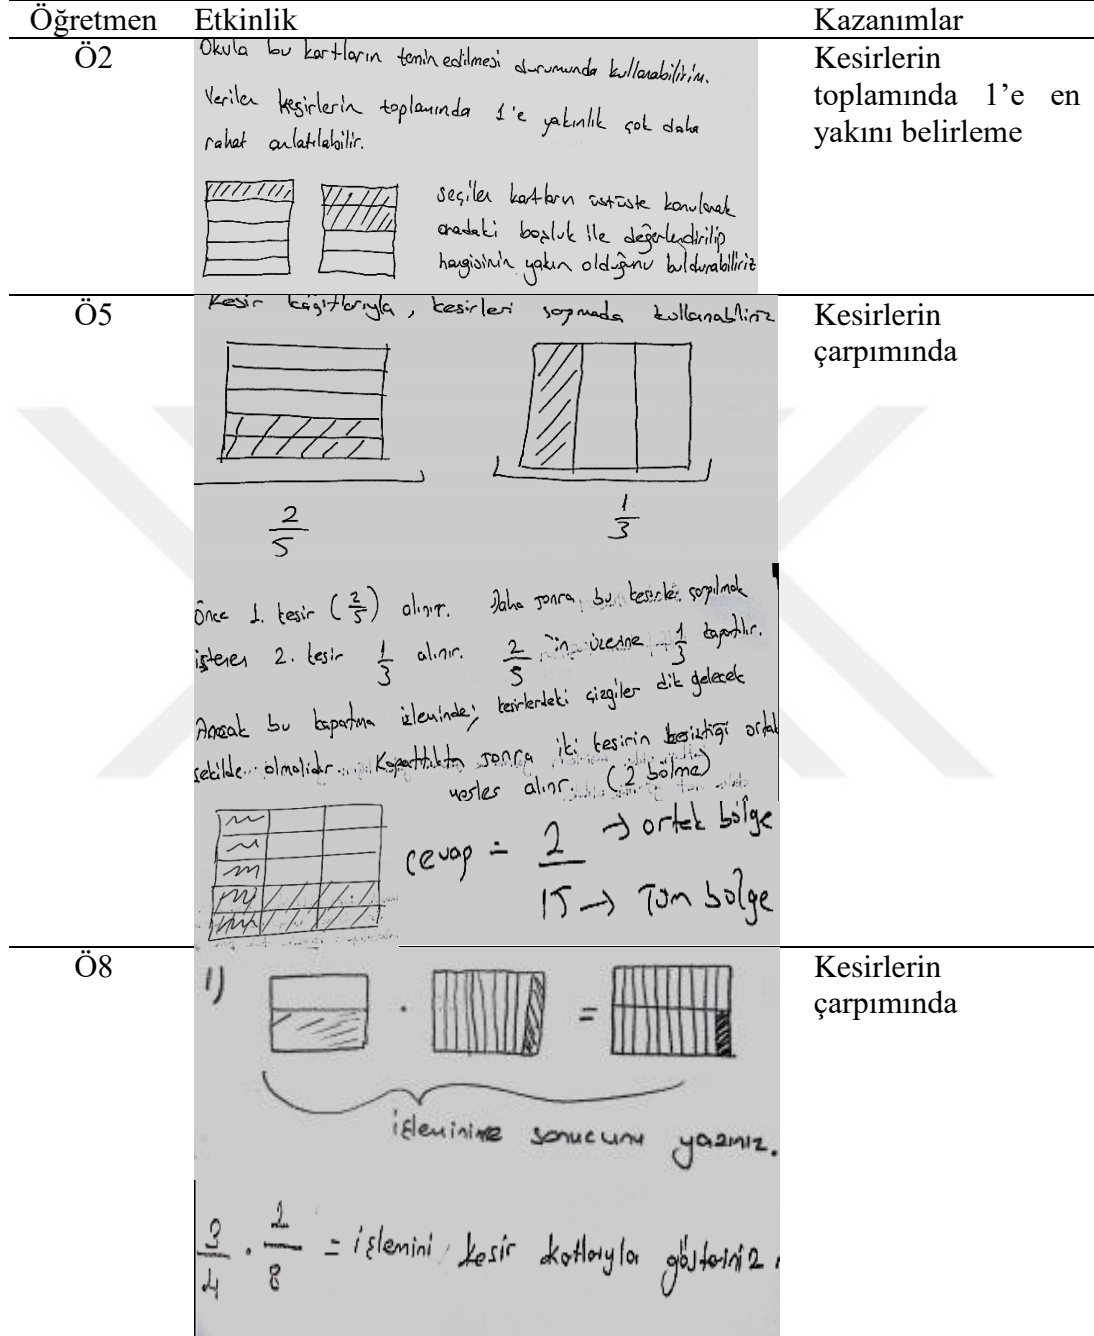 Öğretmen Etkinlik Kazanımlar
Ö2
Okula bu kartların temin edilmesi durumunda kullanabilirim.
Verilen kesirlerin toplamında 1'e yakınlık çok daha
rahat anlatılabilir.
seçilen kartların üstüste konularak
aradaki boşluk ile değerlendirilip
hangisinin yakın olduğunu buldurabiliriz
Kesirlerin
toplamında 1’e en
yakını belirleme
Ö5
Kesir kağıtlarıyla, kesirleri çarpmada kullanabiliriz
2/5
1/3
Önce 1. kesir (2/5) alınır. Daha sonra bu kesirle çarpılmak
istenen 2. kesir 1/3 alınır. 2/5 'in üzerine 1/3 kapatılır.
Ancak bu kapatma işleminde; kesirlerdeki çizgiler dik gelecek
şekilde olmalıdır. Kapattıktan sonra iki kesirin kesiştiği ortak
yerler alınır. (2 bölme)
cevap = 2/15 → ortak bölge
→ Tüm bölge
Kesirlerin
çarpımında
Ö8
1)
. =
işleminine sonucunu yazınız.
3/4 . 2/8 = işlemini kesir kartlarıyla gösteriniz
Kesirlerin
çarpımında